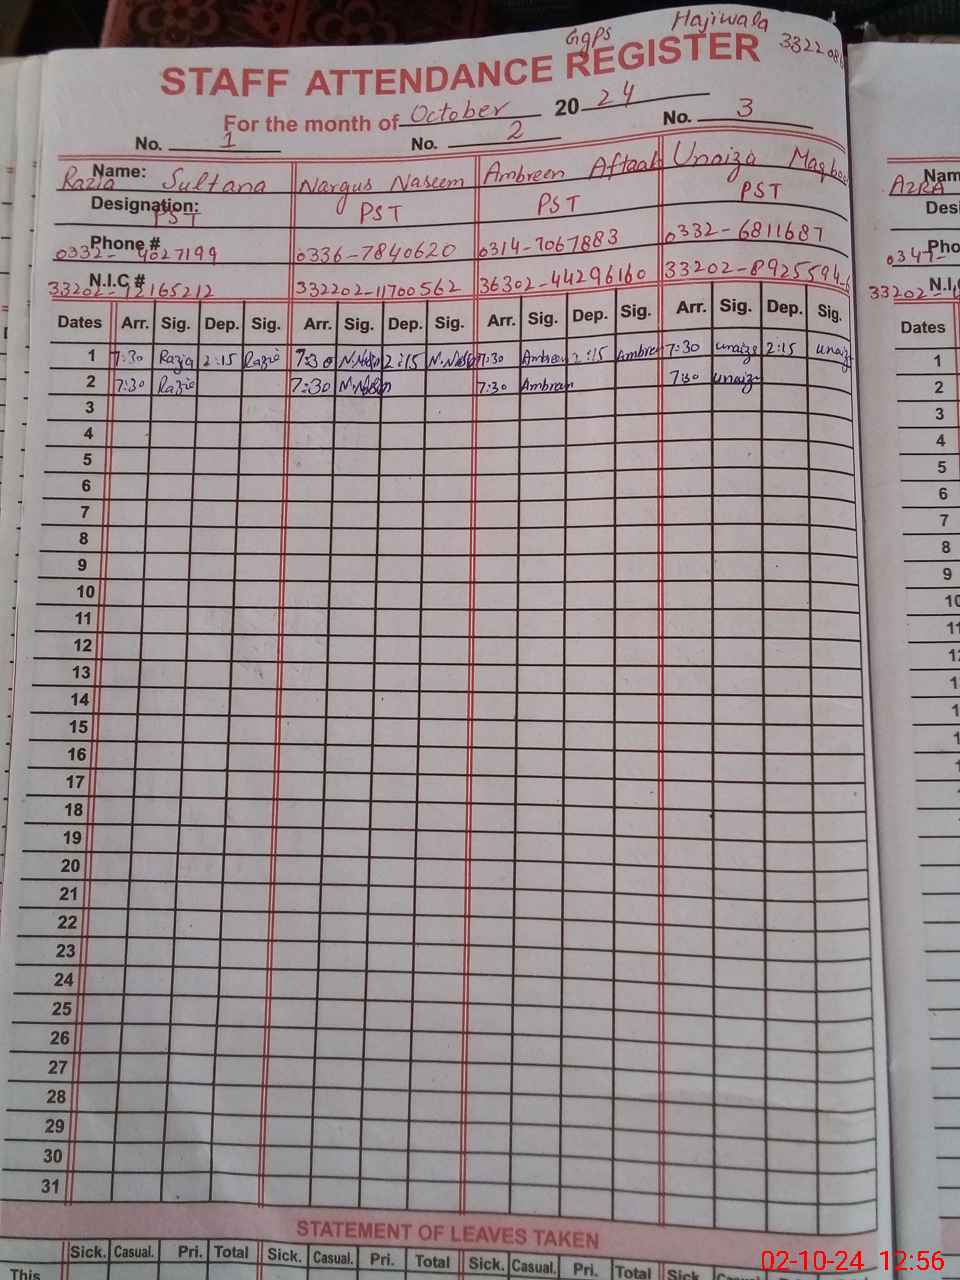 GGPS Hajiwala
STAFF ATTENDANCE REGISTER
For the month of October 20 24
No. 1 No. 2 No. 3
Name: Razia Sultana Nargus Naseem Ambreen Aftaab Unaiza AZRA Nam
Designation: PST PST PST PST Desi
Phone # 0332-4027199 0336-7840620 0314-7067883 0332-6811687 0347- Pho
N.I.C # 33202-72165212 332202-11700562 36302-44296160 33202-8925594-6 33202- N.I.
Dates Arr. Sig. Dep. Sig. Arr. Sig. Dep. Sig. Arr. Sig. Dep. Sig. Arr. Sig. Dep. Sig. Dates
1 7:30 Razia 2:15 Razia 7:30 2:15 7:30 Ambreen 2:15 Ambreen 7:30 unaiza 2:15 unaiza 1
2 7:30 Razia 7:30 7:30 Ambreen 7:30 unaiza 2
3 3
4 4
5 5
6 6
7 7
8 8
9 9
10 10
11 11
12
13
14
15
16
17
18
19
20
21
22
23
24
25
26
27
28
29
30
31
STATEMENT OF LEAVES TAKEN
Sick. Casual. Pri. Total Sick. Casual. Pri. Total Sick. Casual. Pri. Total Sick. Casual.
This
02-10-24 12:56